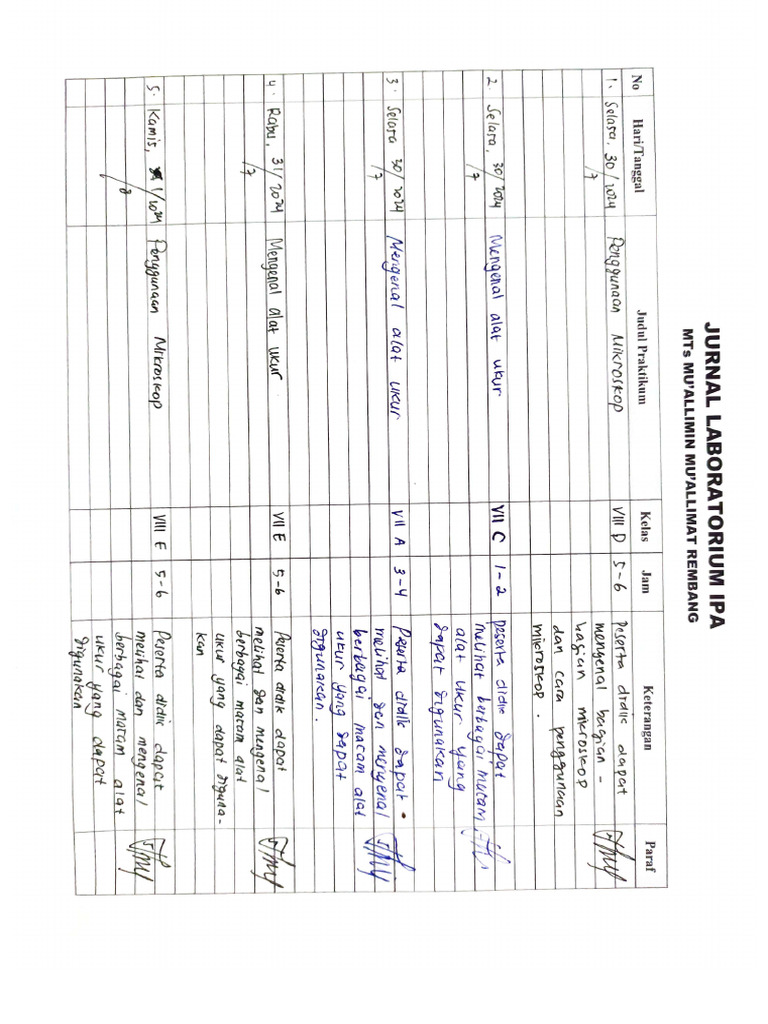 JURNAL LABORATORIUM IPA
MTs MU'ALLIMIN MU'ALLIMAT REMBANG
No Hari/Tanggal Judul Praktikum Kelas Jam Keterangan Paraf
1. Selasa, 30/2024 Penggunaan Mikroskop VIII D 5-6 Peserta didik dapat
/7 mengenal bagian -
bagian mikroskop
dan cara penggunaan
mikroskop.
2. Selasa, 30/2024 Mengenal alat ukur VII C 1-2 peserta didik dapat
/7 melihat berbagai macam
alat ukur yang
dapat digunakan
3. Selasa 30/2024 Mengenal alat ukur VII A 3-4 Peserta didik dapat
/7 melihat dan mengenal
berbagai macam alat
ukur yang dapat
digunakan.
4. Rabu, 31/2024 Mengenal alat ukur VII E 5-6 Peserta didik dapat
/7 melihat dan mengenal
berbagai macam alat
ukur yang dapat diguna-
kan
5. Kamis, 1/2024 Penggunaan Mikroskop VIII E 5-6 Peserta didik dapat
/8 melihat dan mengenal
berbagai macam alat
ukur yang dapat
digunakan